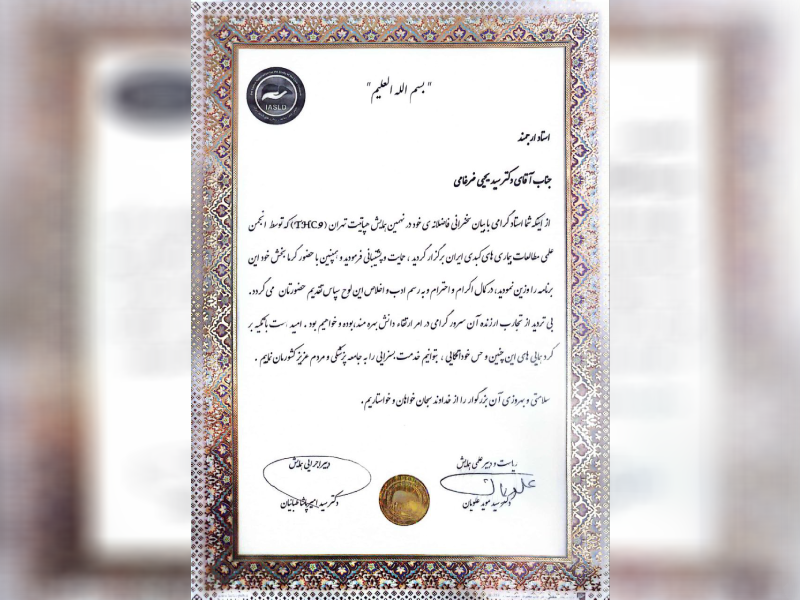 "بسم الله العلیم"
IASLD
استاد ارجمند
جناب آقای دکتر سید یحیی ضرغامی
از اینکه شما استاد گرامی با بیان سخنرانی فاضلانه ی خود در نهمین همایش هپاتیت تهران (THC9) که توسط انجمن
علمی مطالعات بیماری های کبدی ایران برگزار گردید ، حمایت و پشتیبانی فرمودید و همچنین با حضور گرما بخش خود این
برنامه را وزین نمودید، در کمال اکرام و احترام و به رسم ادب و اخلاص این لوح سپاس تقدیم حضورتان می گردد.
بی تردید از تجارب ارزنده آن سرور گرامی در امر ارتقاء دانش بهره مند بوده و خواهیم بود . امید است با تکیه بر
گردهمایی های این چنین و حس خودآگاهی ، بتوانیم خدمت بسزایی را به جامعه پزشکی و مردم عزیز کشورمان نماییم .
سلامتی و بهروزی آن بزرگوار را از خداوند سبحان خواهان و خواستاریم.
ریاست و دبیر علمی همایش
دکتر سید موید علویان
دبیر اجرایی همایش
دکتر سید امیر پاشا طباییان